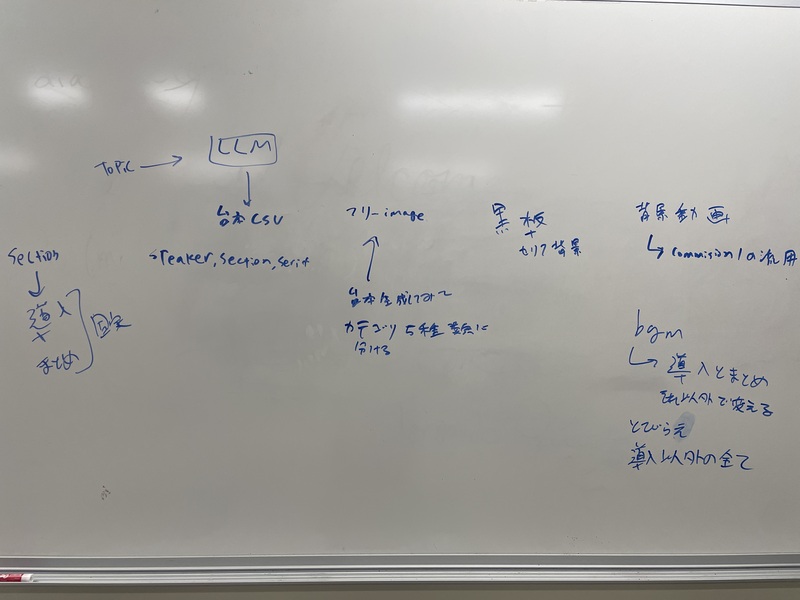 Topic → LLM
↓
台本 CSV
speaker, section, serif
section
↓
導入
+
まとめ
固定
フリー image
↑
台本生成してみて
カテゴリ 5種類に
分ける
黒板
+
セリフ背景
背景動画
↳ commision1の流用
bgm
↳ 導入とまとめ
それ以外で変える
とびらえ
導入以外の全て